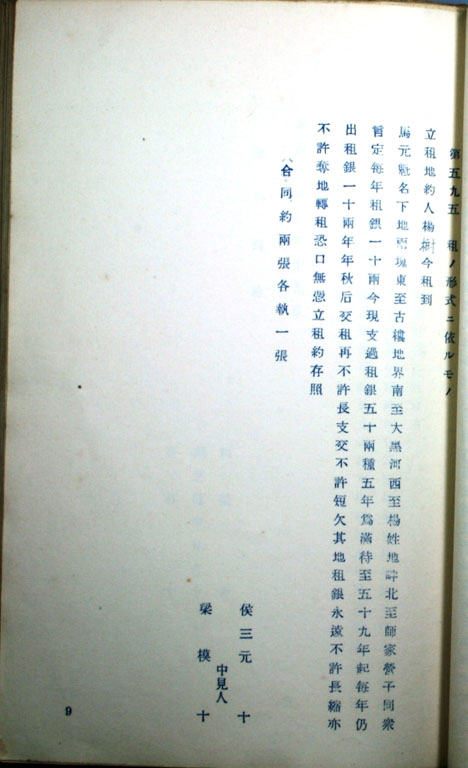 第五九五　租ノ形式ニ依ルモノ
立租地約人楊樹今租到
馬元魁名下地兩塊東至古檔地界南至大黑河西至楊姓地畔北至師家營子同衆
言定每年租銀一十兩今現支過租銀五十兩種五年爲滿待至五十九年起每年仍
出租銀一十兩年年秋后交租再不許長支交不許短欠其地租銀永遠不許長縮亦
不許奪地轉租恐口無憑立租約存照
合同約兩張各執一張
侯三元　十
中見人
梁模　十
9